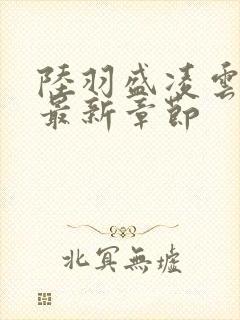 陸羽盛凌雲
最新章節
北冥無墟